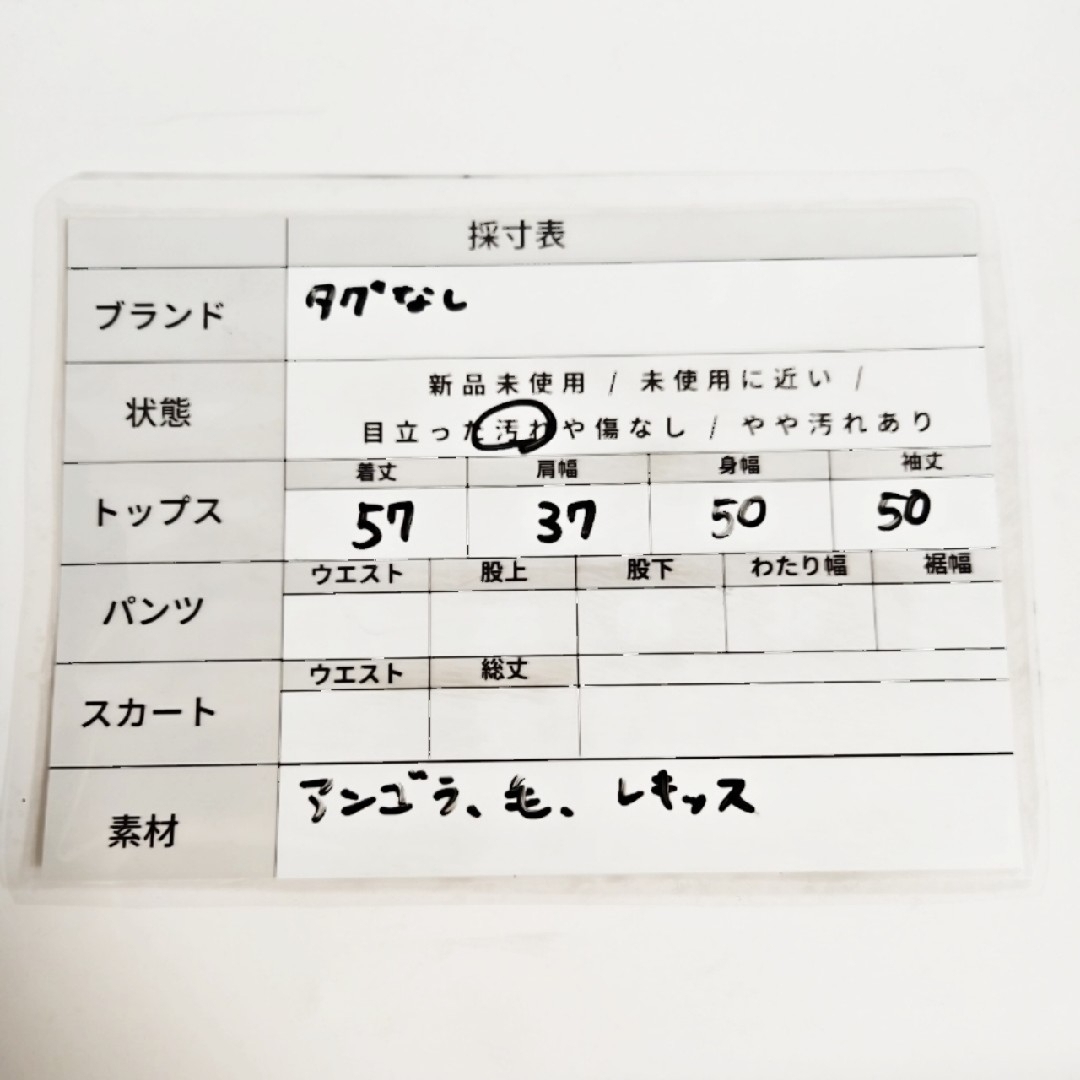 採寸表
ブランド タグなし
状態 新品未使用 / 未使用に近い /
目立った汚れや傷なし / やや汚れあり
トップス 着丈 肩幅 身幅 袖丈
57 37 50 50
パンツ ウエスト 股上 股下 わたり幅 裾幅
スカート ウエスト 総丈
素材 アンゴラ、毛、レキッス